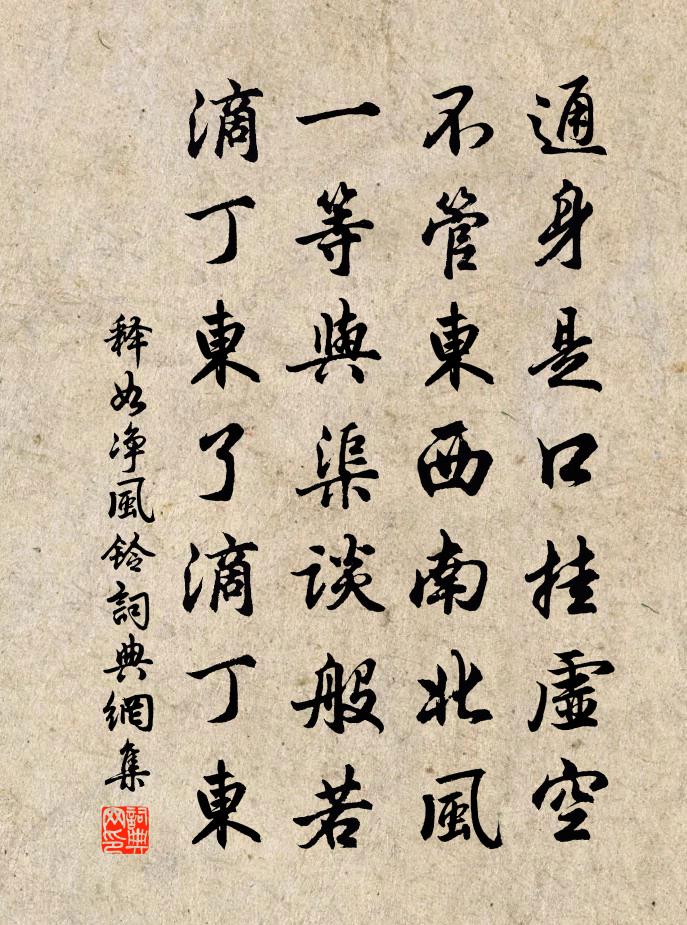 通身是口挂虛空
不管東西南北風
一等與渠談般若
滴丁東了滴丁東
释如净風鈴詞典網集
詞典网印